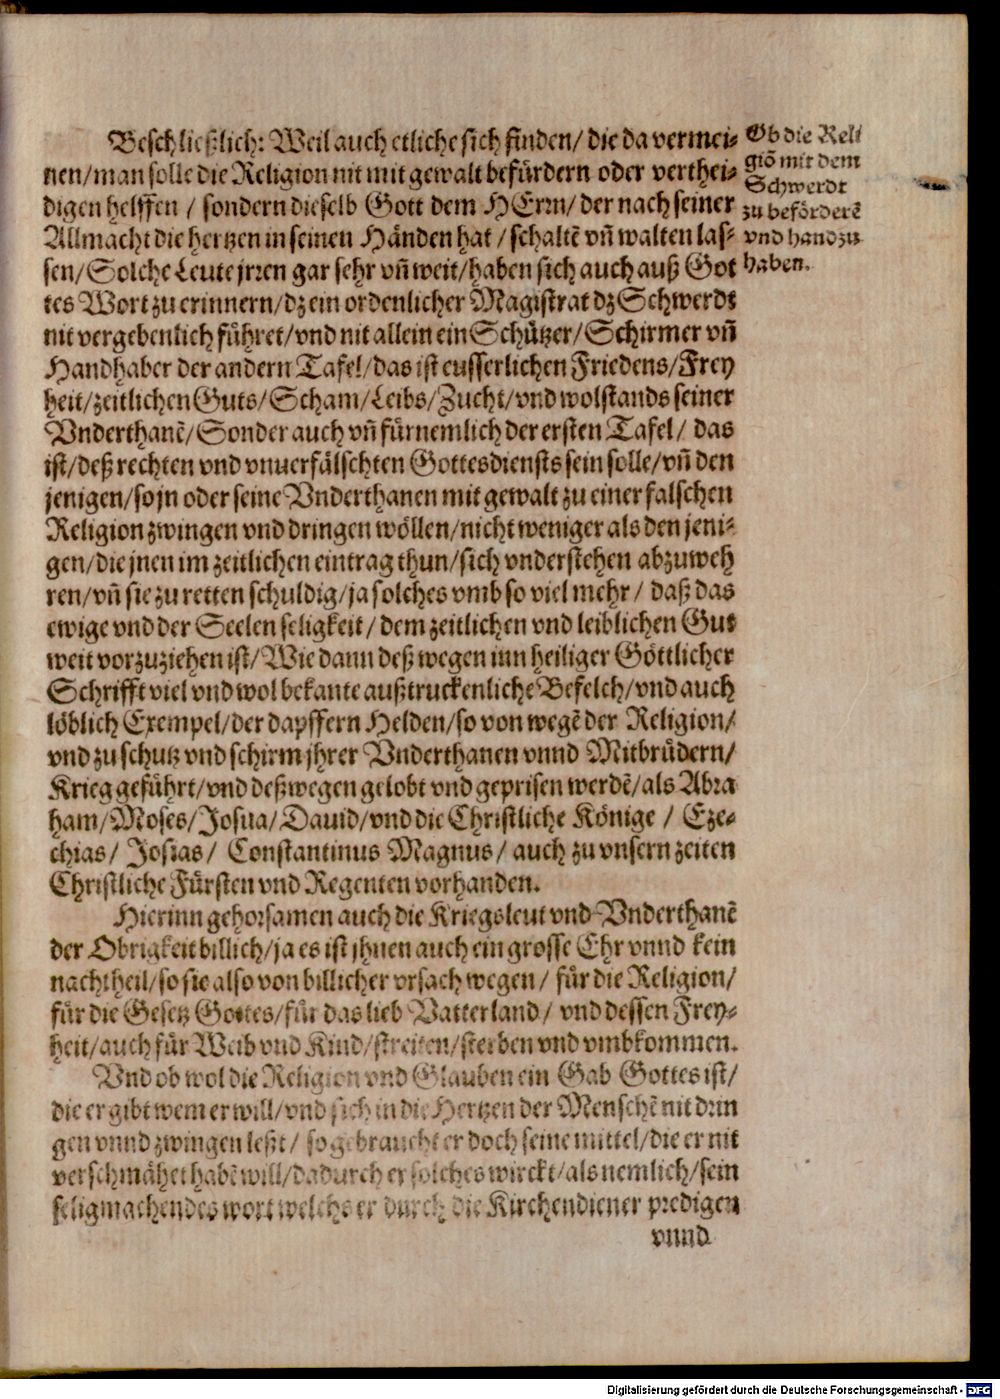 Beschließlich: Weil auch etliche sich finden/ die da vermei-
nen/ man solle die Religion nit mit gewalt befürdern oder verthei-
digen helffen / sondern dieselb Gott dem HErrn/ der nach seiner
Allmacht die hertzen in seinen Händen hat / schaltē vñ walten las-
sen/ Solche Leute jrren gar sehr vñ weit/ haben sich auch auß Got
tes Wort zu erinnern/ dz ein ordenlicher Magistrat dz Schwerdt
nit vergebenlich führet/ vnd nit allein ein Schützer/ Schirmer vñ
Handhaber der andern Tafel/ das ist eusserlichen Friedens/ Frey
heit/ zeitlichen Guts/ Scham/ Leibs/ Zucht/ vnd wolstands seiner
Vnderthanē/ Sonder auch vñ fürnemlich der ersten Tafel/ das
ist/ deß rechten vnd vnuerfälschten Gottesdiensts sein solle/ vñ den
jenigen/ so jn oder seine Vnderthanen mit gewalt zu einer falschen
Religion zwingen vnd dringen wöllen/ nicht weniger als den jeni-
gen/ die jnen im zeitlichen eintrag thun/ sich vnderstehen abzuweh
ren/ vñ sie zu retten schuldig/ ja solches vmb so viel mehr / daß das
ewige vnd der Seelen seligkeit / dem zeitlichen vnd leiblichen Gut
weit vorzuziehen ist/ Wie dann deßwegen inn heiliger Göttlicher
Schrifft viel vnd wol bekante außtruckenliche Befelch/ vnd auch
löblich Exempel/ der dapffern Helden/ so von wegē der Religion/
vnd zu schutz vnd schirm jhrer Vnderthanen vnnd Mitbrüdern/
Krieg geführt/ vnd deßwegen gelobt vnd geprisen werdē/ als Abra
ham/ Moses/ Josua/ Dauid/ vnd die Christliche Könige / Eze-
chias/ Josias/ Constantinus Magnus/ auch zu vnsern zeiten
Christliche Fürsten vnd Regenten vorhanden.
Hierinn gehorsamen auch die Kriegsleut vnd Vnderthanē
der Obrigkeit billich/ ja es ist jhnen auch ein grosse Ehr vnnd kein
nachtheil/ so sie also von billicher vrsach wegen / für die Religion/
für die Gesetz Gottes/ für das lieb Vatterland / vnd dessen Frey-
heit/ auch für Weib vnd Kind/ streiten/ sterben vnd vmbkommen.
Vnd ob wol die Religion vnd Glauben ein Gab Gottes ist/
die er gibt wem er will/ vnd sich in die Hertzen der Menschē nit drin
gen vnnd zwingen leßt / so gebraucht er doch seine mittel/ die er nit
verschmähet habē will/ dadurch er solches wirckt/ als nemlich/ sein
seligmachendes wort welchs er durch die Kirchendiener predigen
vnnd
Ob die Reli
giō mit dem
Schwerdt
zu beförderē
vnd handzu
haben.
Digitalisierung gefördert durch die Deutsche Forschungsgemeinschaft - DFG